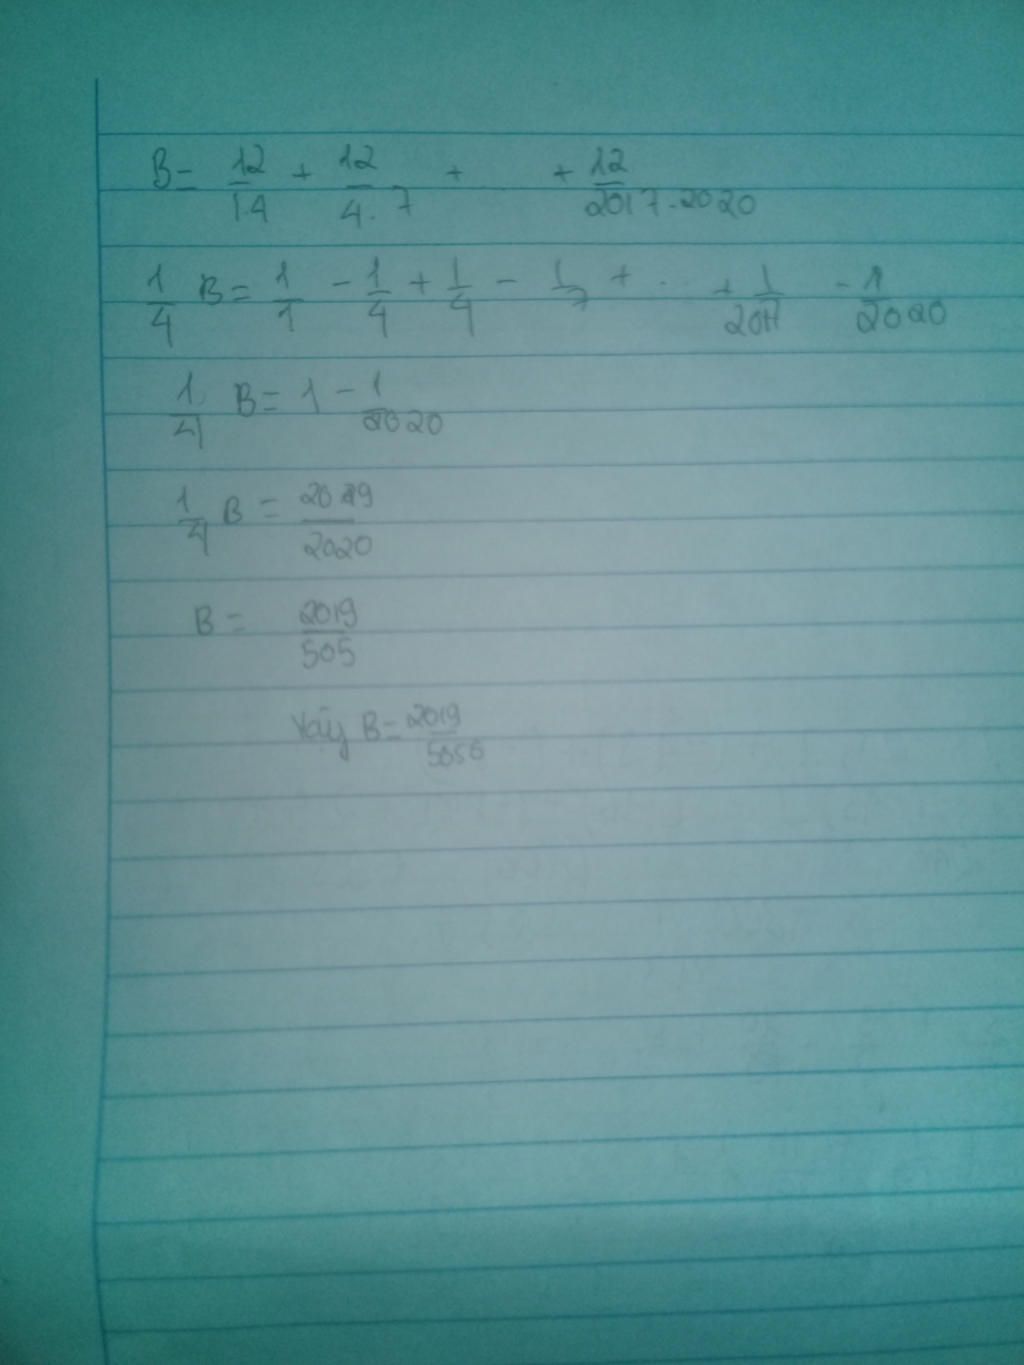 B = 12/1.4 + 12/4.7 + + 12/2017.2020
1/4 B = 1/1 - 1/4 + 1/4 - 1/7 + ... + 1/2017 - 1/2020
1/4 B = 1 - 1/2020
1/4 B = 2019/2020
B = 2019/505
Vậy B = 2019/